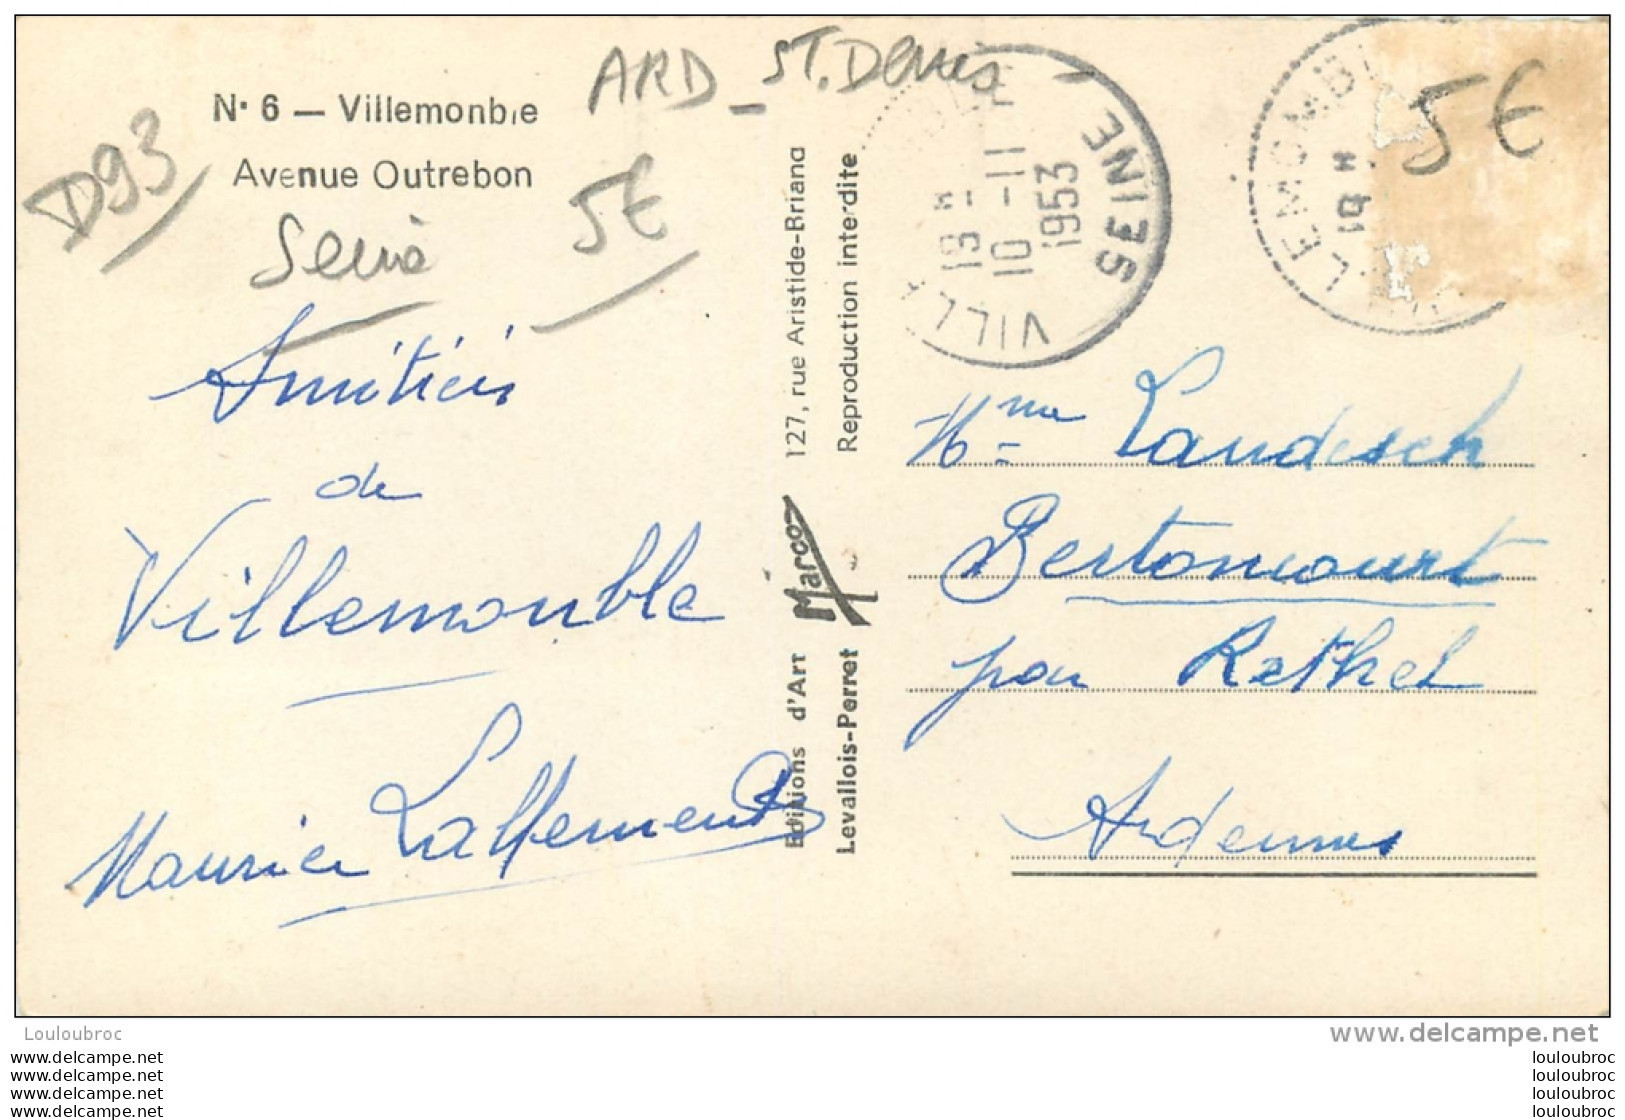 ARD - ST. Denis
N° 6 — Villemonble
Avenue Outrebon
D93
5€
5€
Amitiés
de
Villemomble
Maurice Lallement
Editions d'Art Marco 127, rue Aristide-Briand
Levallois-Perret Reproduction interdite
VILLEMOMBLE SEINE
19 H
10 - 11
1953
VILLEMOMB
19 H
Mme Landesch
Bertoncourt
par Rethel
Ardennes
Louloubroc
www.delcampe.net
www.delcampe.net
www.delcampe.net
www.delcampe.net
www.delcampe.net
louloubroc
louloubroc
louloubroc
louloubroc